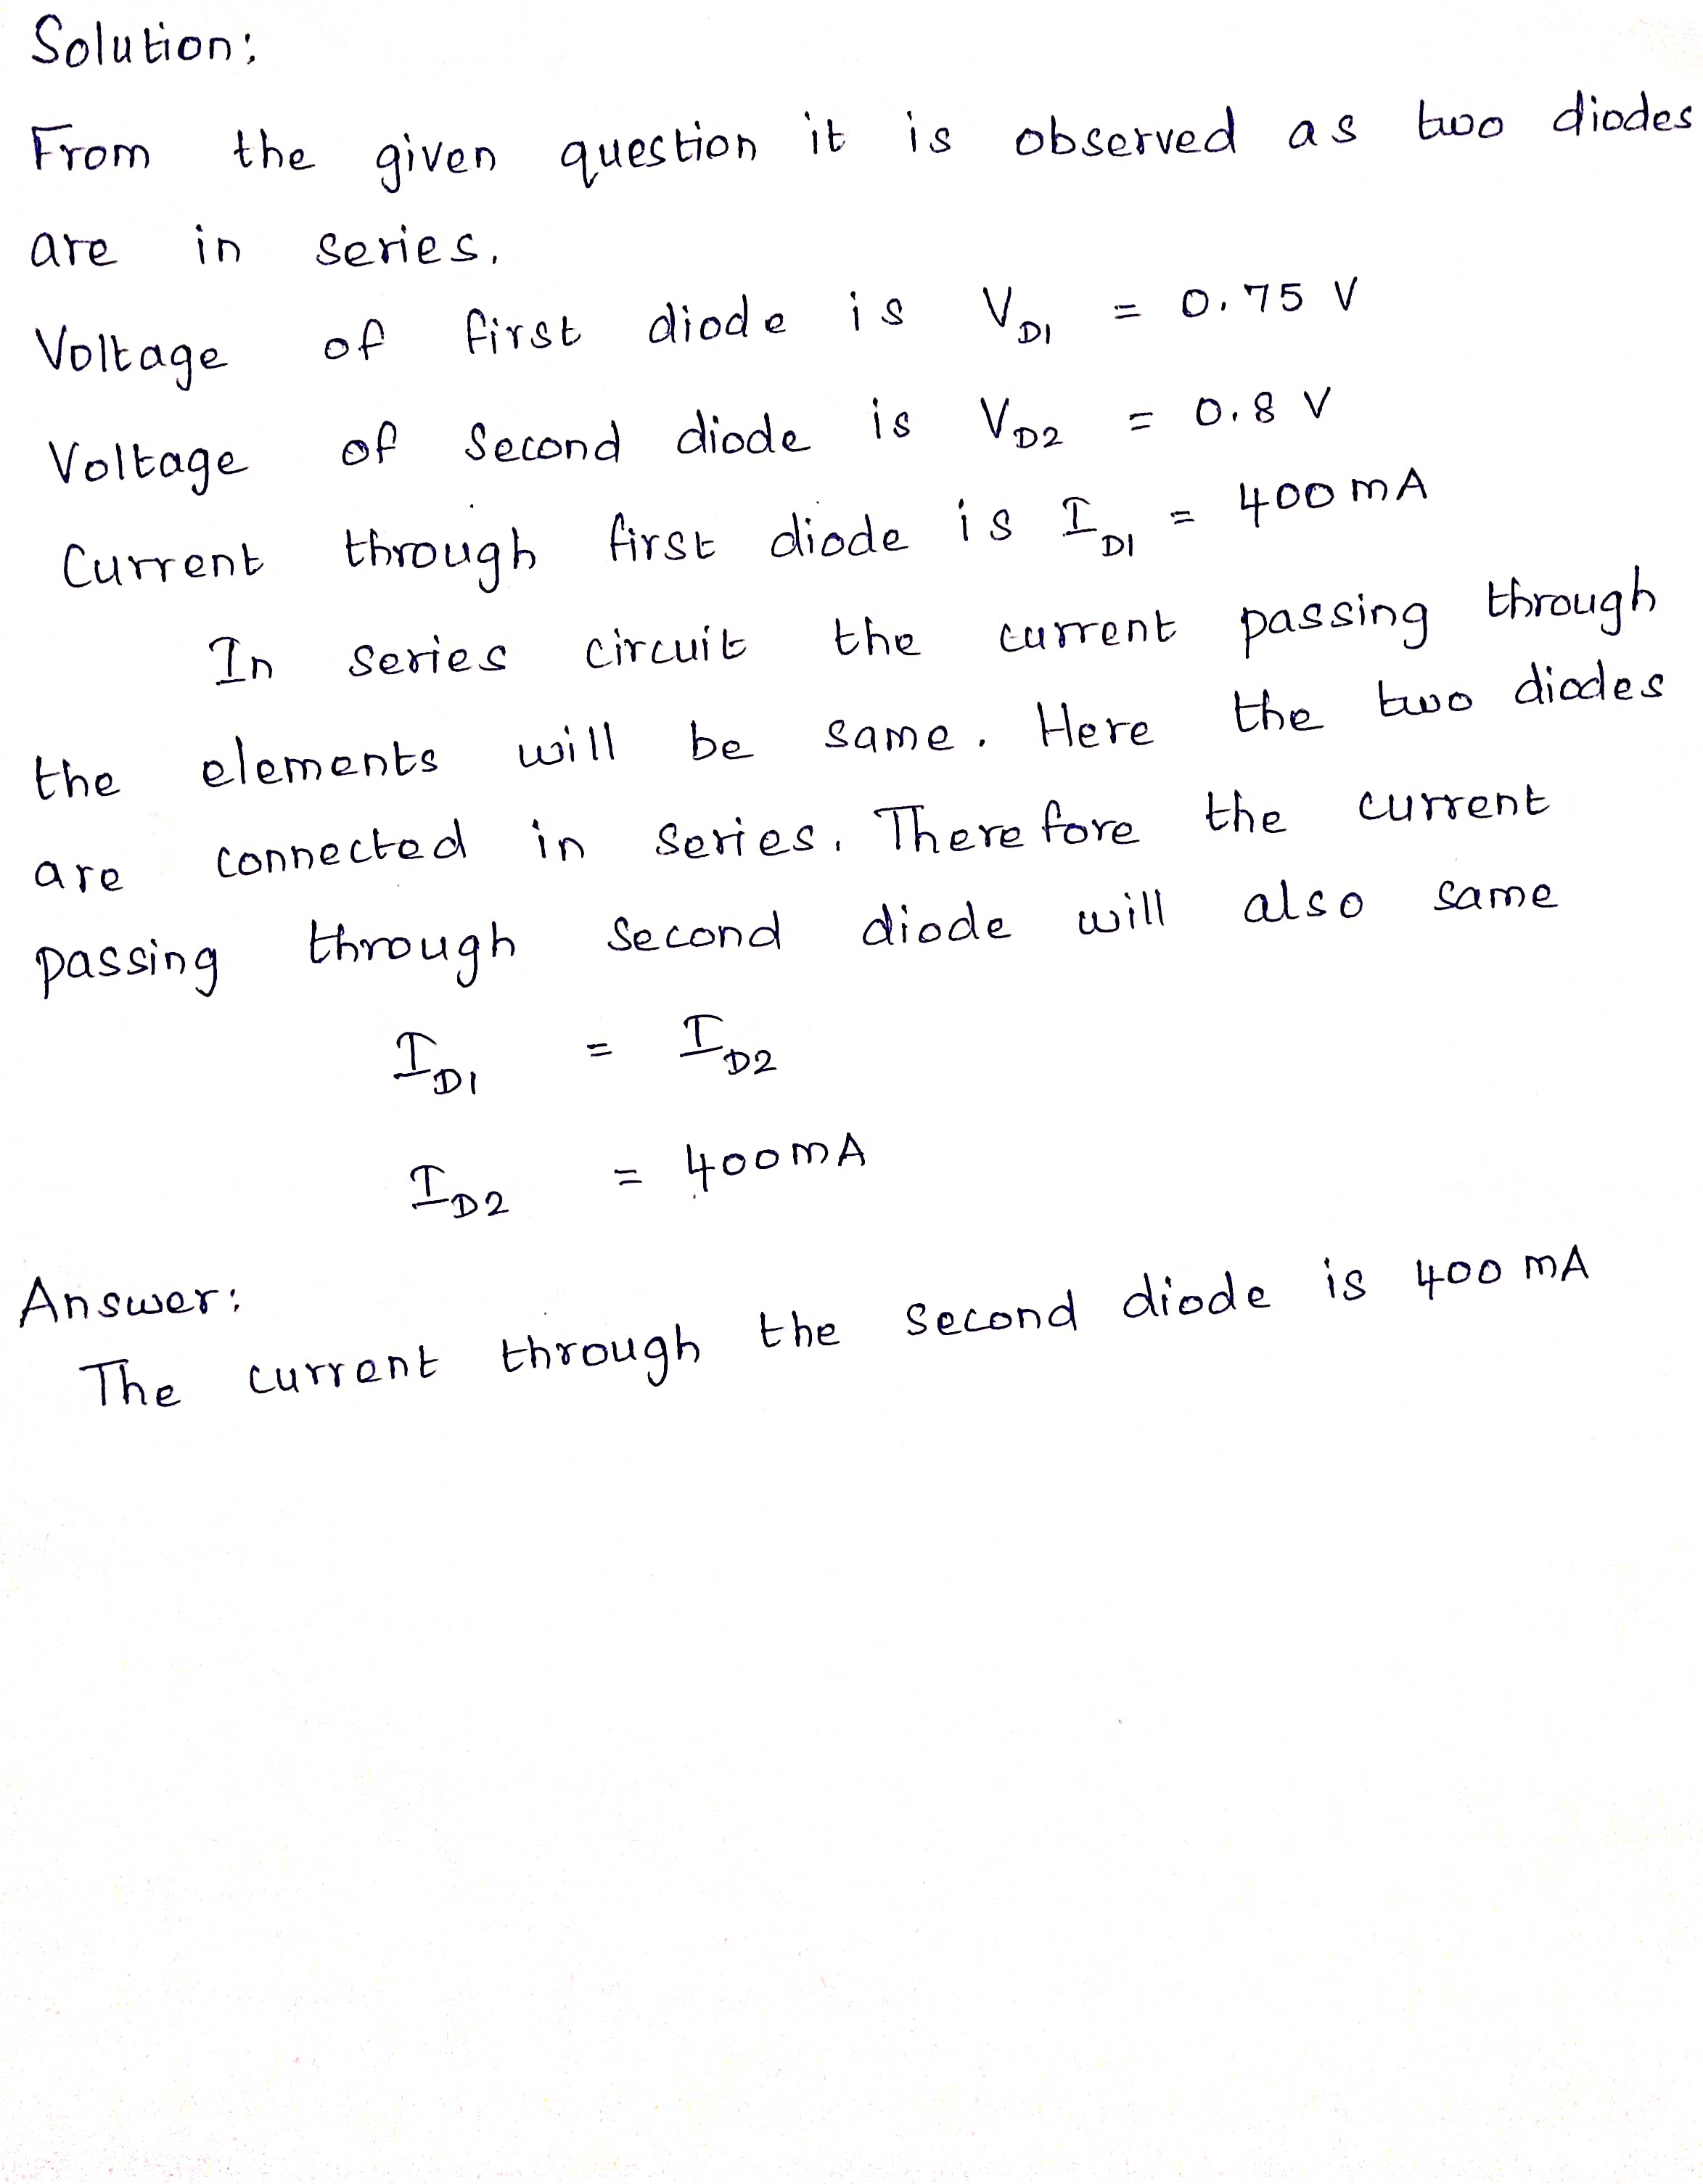 Solution:
From the given question it is observed as two diodes
are in series.
Voltage of first diode is VD1 = 0.75 V
Voltage of second diode is VD2 = 0.8 V
Current through first diode is ID1 = 400 mA
In series circuit the current passing through
the elements will be same. Here the two diodes
are connected in series. Therefore the current
passing through second diode will also same
ID1 = ID2
ID2 = 400mA
Answer:
The current through the second diode is 400 mA